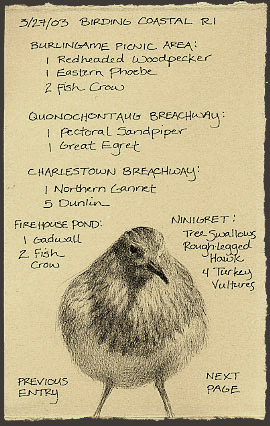 3/27/03 BIRDING COASTAL RI
BURLINGAME PICNIC AREA:
1 Redheaded Woodpecker
1 Eastern Phoebe
2 Fish Crow
QUONOCHONTAUG BREACHWAY:
1 Pectoral Sandpiper
1 Great Egret
CHARLESTOWN BREACHWAY:
1 Northern Gannet
5 Dunlin
FIREHOUSE POND:
1 Gadwall
2 Fish
Crow
NINIGRET:
Tree Swallows
Rough-Legged
Hawk
4 Turkey
Vultures
PREVIOUS
ENTRY
NEXT
PAGE